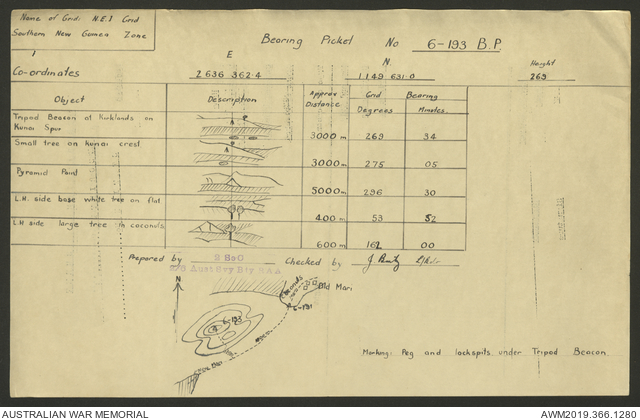 Name of Grid: N.E.I Grid
Southern New Guinea Zone
Bearing Picket No 6-193 B.P.
E
N
Height
Co-ordinates 2 636 362.4 1 149 631.0 263
Object Description Approx Distance Grid Bearing
Degrees Minutes
Tripod Beacon at Kirklands on Kunai Spur 3000 m 269 34
Small tree on kunai crest 3000 m 275 05
Pyramid Point 5000 m 296 30
L.H. side base white tree on flat 400 m 53 52
L.H side large tree in coconuts 600 m 162 00
Prepared by 2 Svy Checked by
Aust Svy Bty R.A.A
N
Old Mari
6-191
6-193
Marking: Peg and lockspits under Tripod Beacon.
AUSTRALIAN WAR MEMORIAL
AWM2019.366.1280